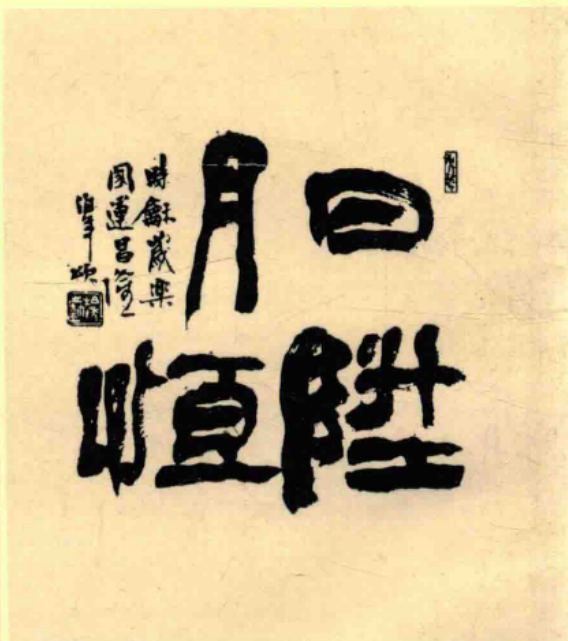 日陞
月恒
時龢歲樂
國運昌隆